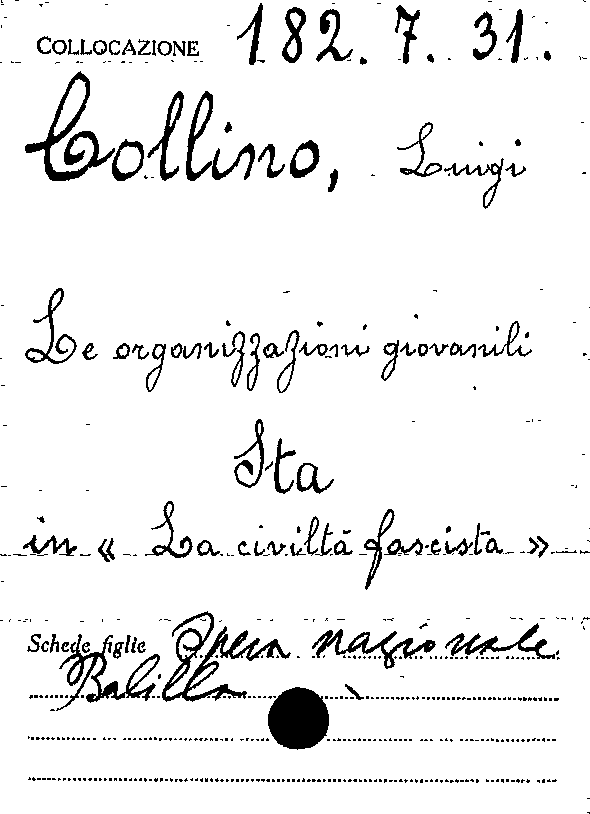 COLLOCAZIONE 182.7.31.
Collino, Luigi
Le organizzazioni giovanili
Sta
in « La civiltà fascista »
Schede figlie Opera nazionale
Balilla